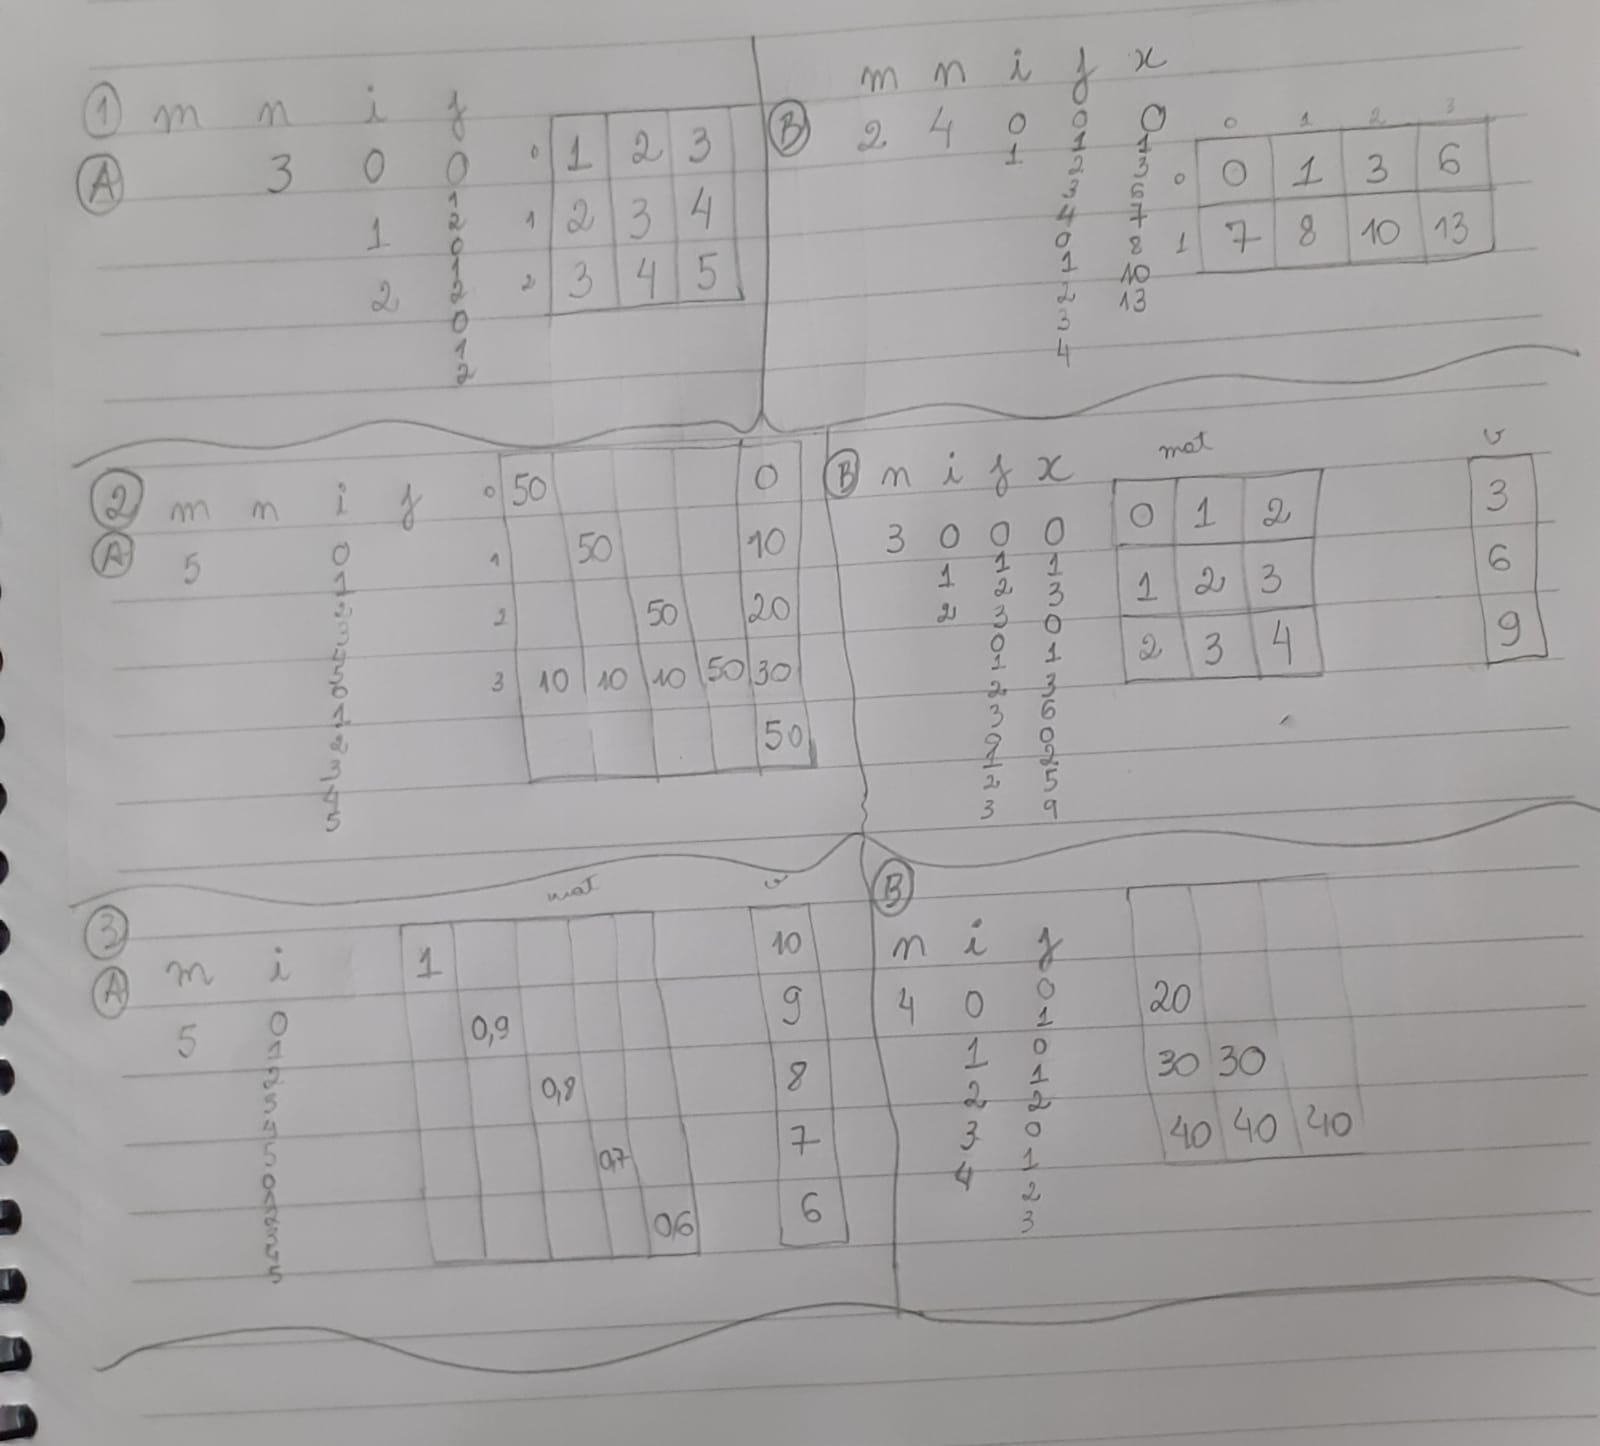 ① m n i j
Ⓐ 3 0 0
1
1 2
0
1
2 2
0
1
2
0 1 2 3
1 2 3 4
2 3 4 5
m n i j x
0
Ⓑ 2 4 0 0 0
1 1 1
2 3
3 6
4 7
0 8
1 10
2 13
3
4
0 1 2 3
0 0 1 3 6
1 7 8 10 13
② m n i j
Ⓐ 5 0
1
2
3
0
1
2
3
4
5
0 50 0
1 50 10
2 50 20
3 10 10 10 50 30
50
Ⓑ n i j x
3 0 0 0
1 1 1
2 2 3
3 0
0
1 1
2 3
3 6
0 0
1 2
2 5
3 9
mat
0 1 2
1 2 3
2 3 4
v
3
6
9
③
Ⓐ m i
5 0
1
2
3
5
0
5
mat
1
0,9
0,8
0,7
0,6
v
10
9
8
7
6
Ⓑ
n i j
4 0 0
1
1 0
1
2 2
3 0
4 1
2
3
20
30 30
40 40 40